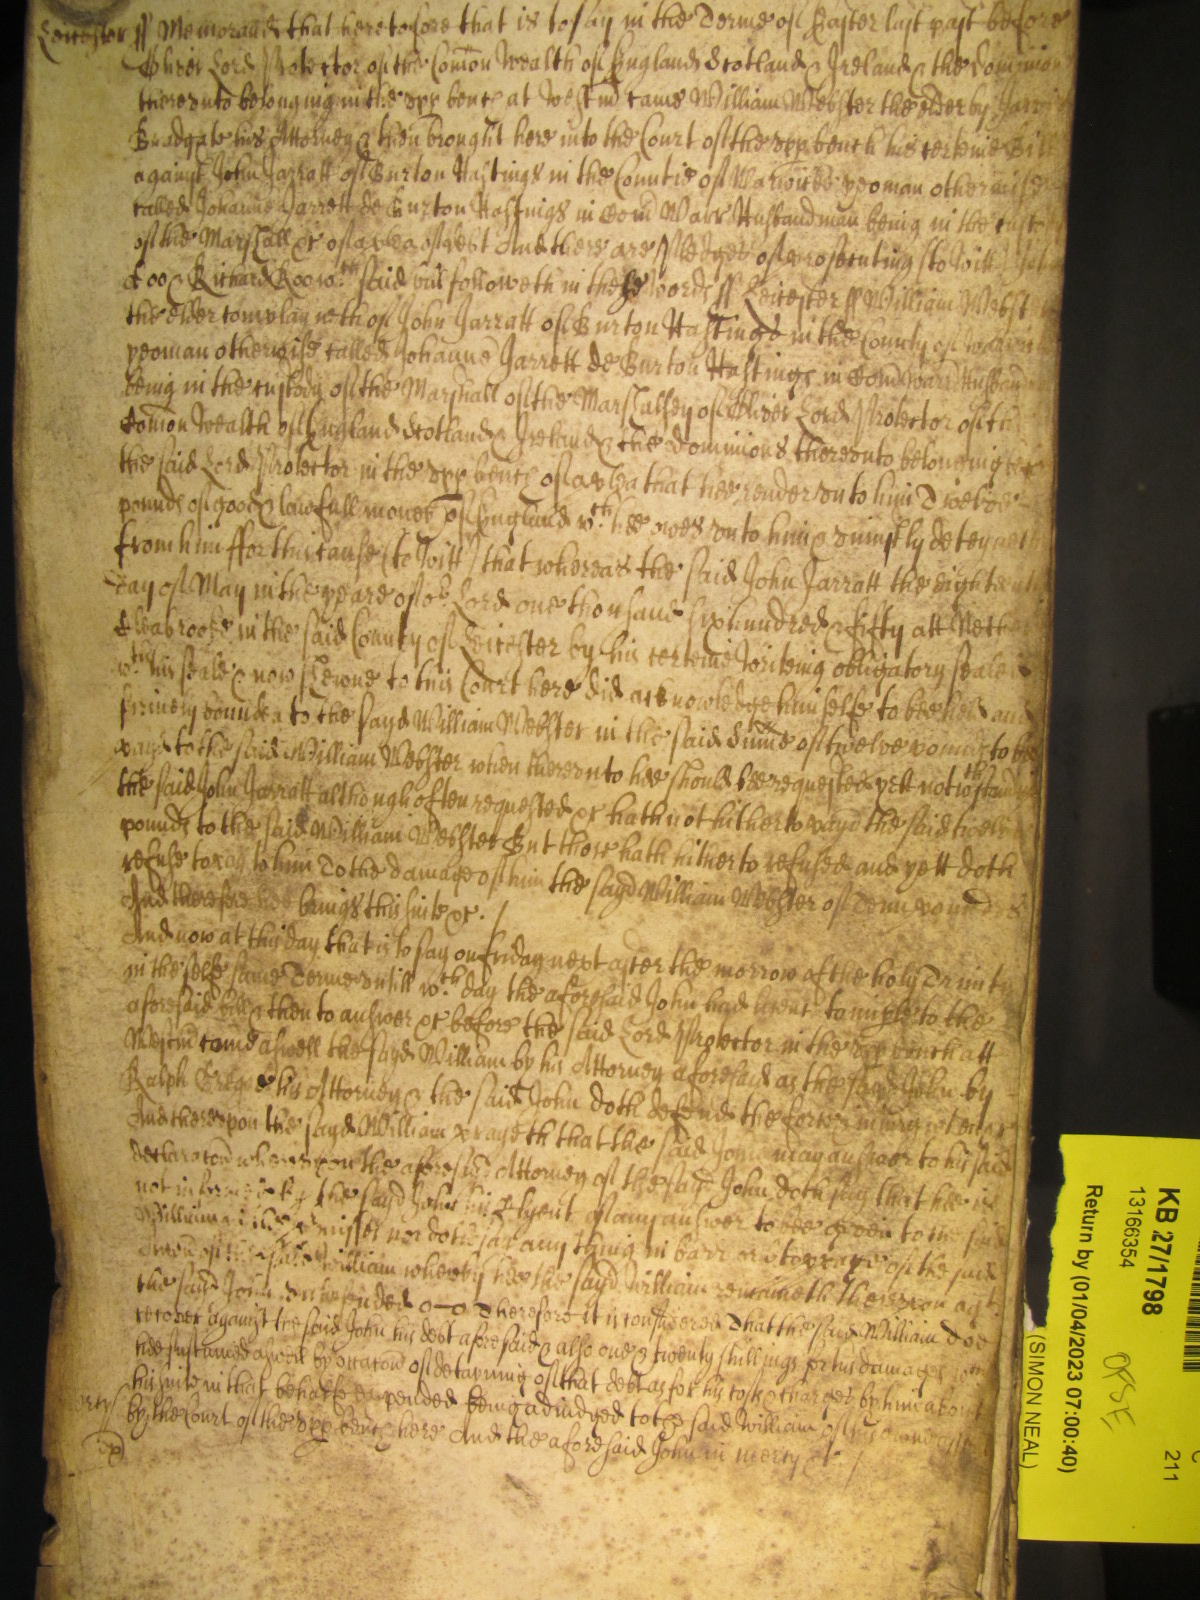 Leicester ss Memorand that heretofore that is to say in the Terme of Easter last past before
Oliver Lord Protector of the Comon Wealth of England Scotland & Ireland & the Dominions
thereunto belonging in the upp bench at Westm came William Webster the elder by
Brodgate his Attorney & then brought here into the Court of the upp bench his certeine Bill
against John Jarratt of Burton Hastings in the Countie of Warwicke yeoman otherwise
called Johanne Jarrett de Burton Hastings in Com Warr Husbandman being in the custody
of the Marshall &c of a plea of debt And there are pledges of prosecuting to witt John
Doo & Richard Roo wch said bill followeth in these words ss Leicester ss William Webster
the elder complayneth of John Jarratt of Burton Hastings in the County of
yeoman otherwise called Johanne Jarrett de Burton Hastings in Com Warr Husbandman
being in the custody of the Marshall of the Marshalsey of Oliver Lord Protector of the
Comon Wealth of England Scotland & Ireland & the Dominions thereunto belonging
the said Lord Protector in the upp bench of a plea that hee render unto him Twelve
pounds of good & lawfull money of England wch hee owes unto him & uniustly deteyneth
from him ffor this cause (to witt) that whereas the said John Jarratt the eighteenth
day of May in the yeare of or Lord one thousand six hundred & fifty att Nether
Cleabrooke in the said County of Leicester by his certeine writeing obligatory sealed
wth his seale & now shewne to this Court here did acknowledge himselfe to bee held and
firmely bound to the sayd William Webster in the said summe of twelve pounds to bee
payd to the said William Webster when thereunto hee should bee requested yett notwthstanding
the said John Jarratt although often requested &c hath not hitherto payd the said twelve
pounds to the said William Webster But those hath hitherto refused and yett doth
refuse to pay to him To the damage of him the sayd William Webster of Tenn pounds
And therefore hee brings this suite &c.
And now at this day that is to say on Friday next after the morrow of the holy Trinity
in the selfe same Terme untill wch day the aforesaid John had licence to imple to the
aforesaid bill & then to answer &c before the said Lord Protector in the upp bench att
Westm came aswell the sayd William by his Attorney aforesaid as the sayd John by
Ralph his Attorney & the said John doth defend the force & iniury when &c
And thereupon the sayd William prayeth that the said John may answer to his said
declaracon whereupon the aforesaid Attorney of the sayd John doth say that hee is
not informed by the sayd John his Clyent of any answer to bee given to the said
William nor doth say any thing in barr or of the said
accon of the said William whereby hee the sayd William remaineth thereupon agt
the sayd John undefended Therefore it is considered That the said William doe
recover against the said John his debt aforesaid & also one & twenty shillings for his damages wch
hee susteined aswell by occacon of detayning of that debt as for his costs & charges by him about
his suite in that behalfe expended being adiudged to the said William of his owne
by the Court of the upp bench here And the aforesaid John in mercy &c.
KB 27/1798
13166354
Return by (01/04/2023 07:00:40)
(SIMON NEAL)
211